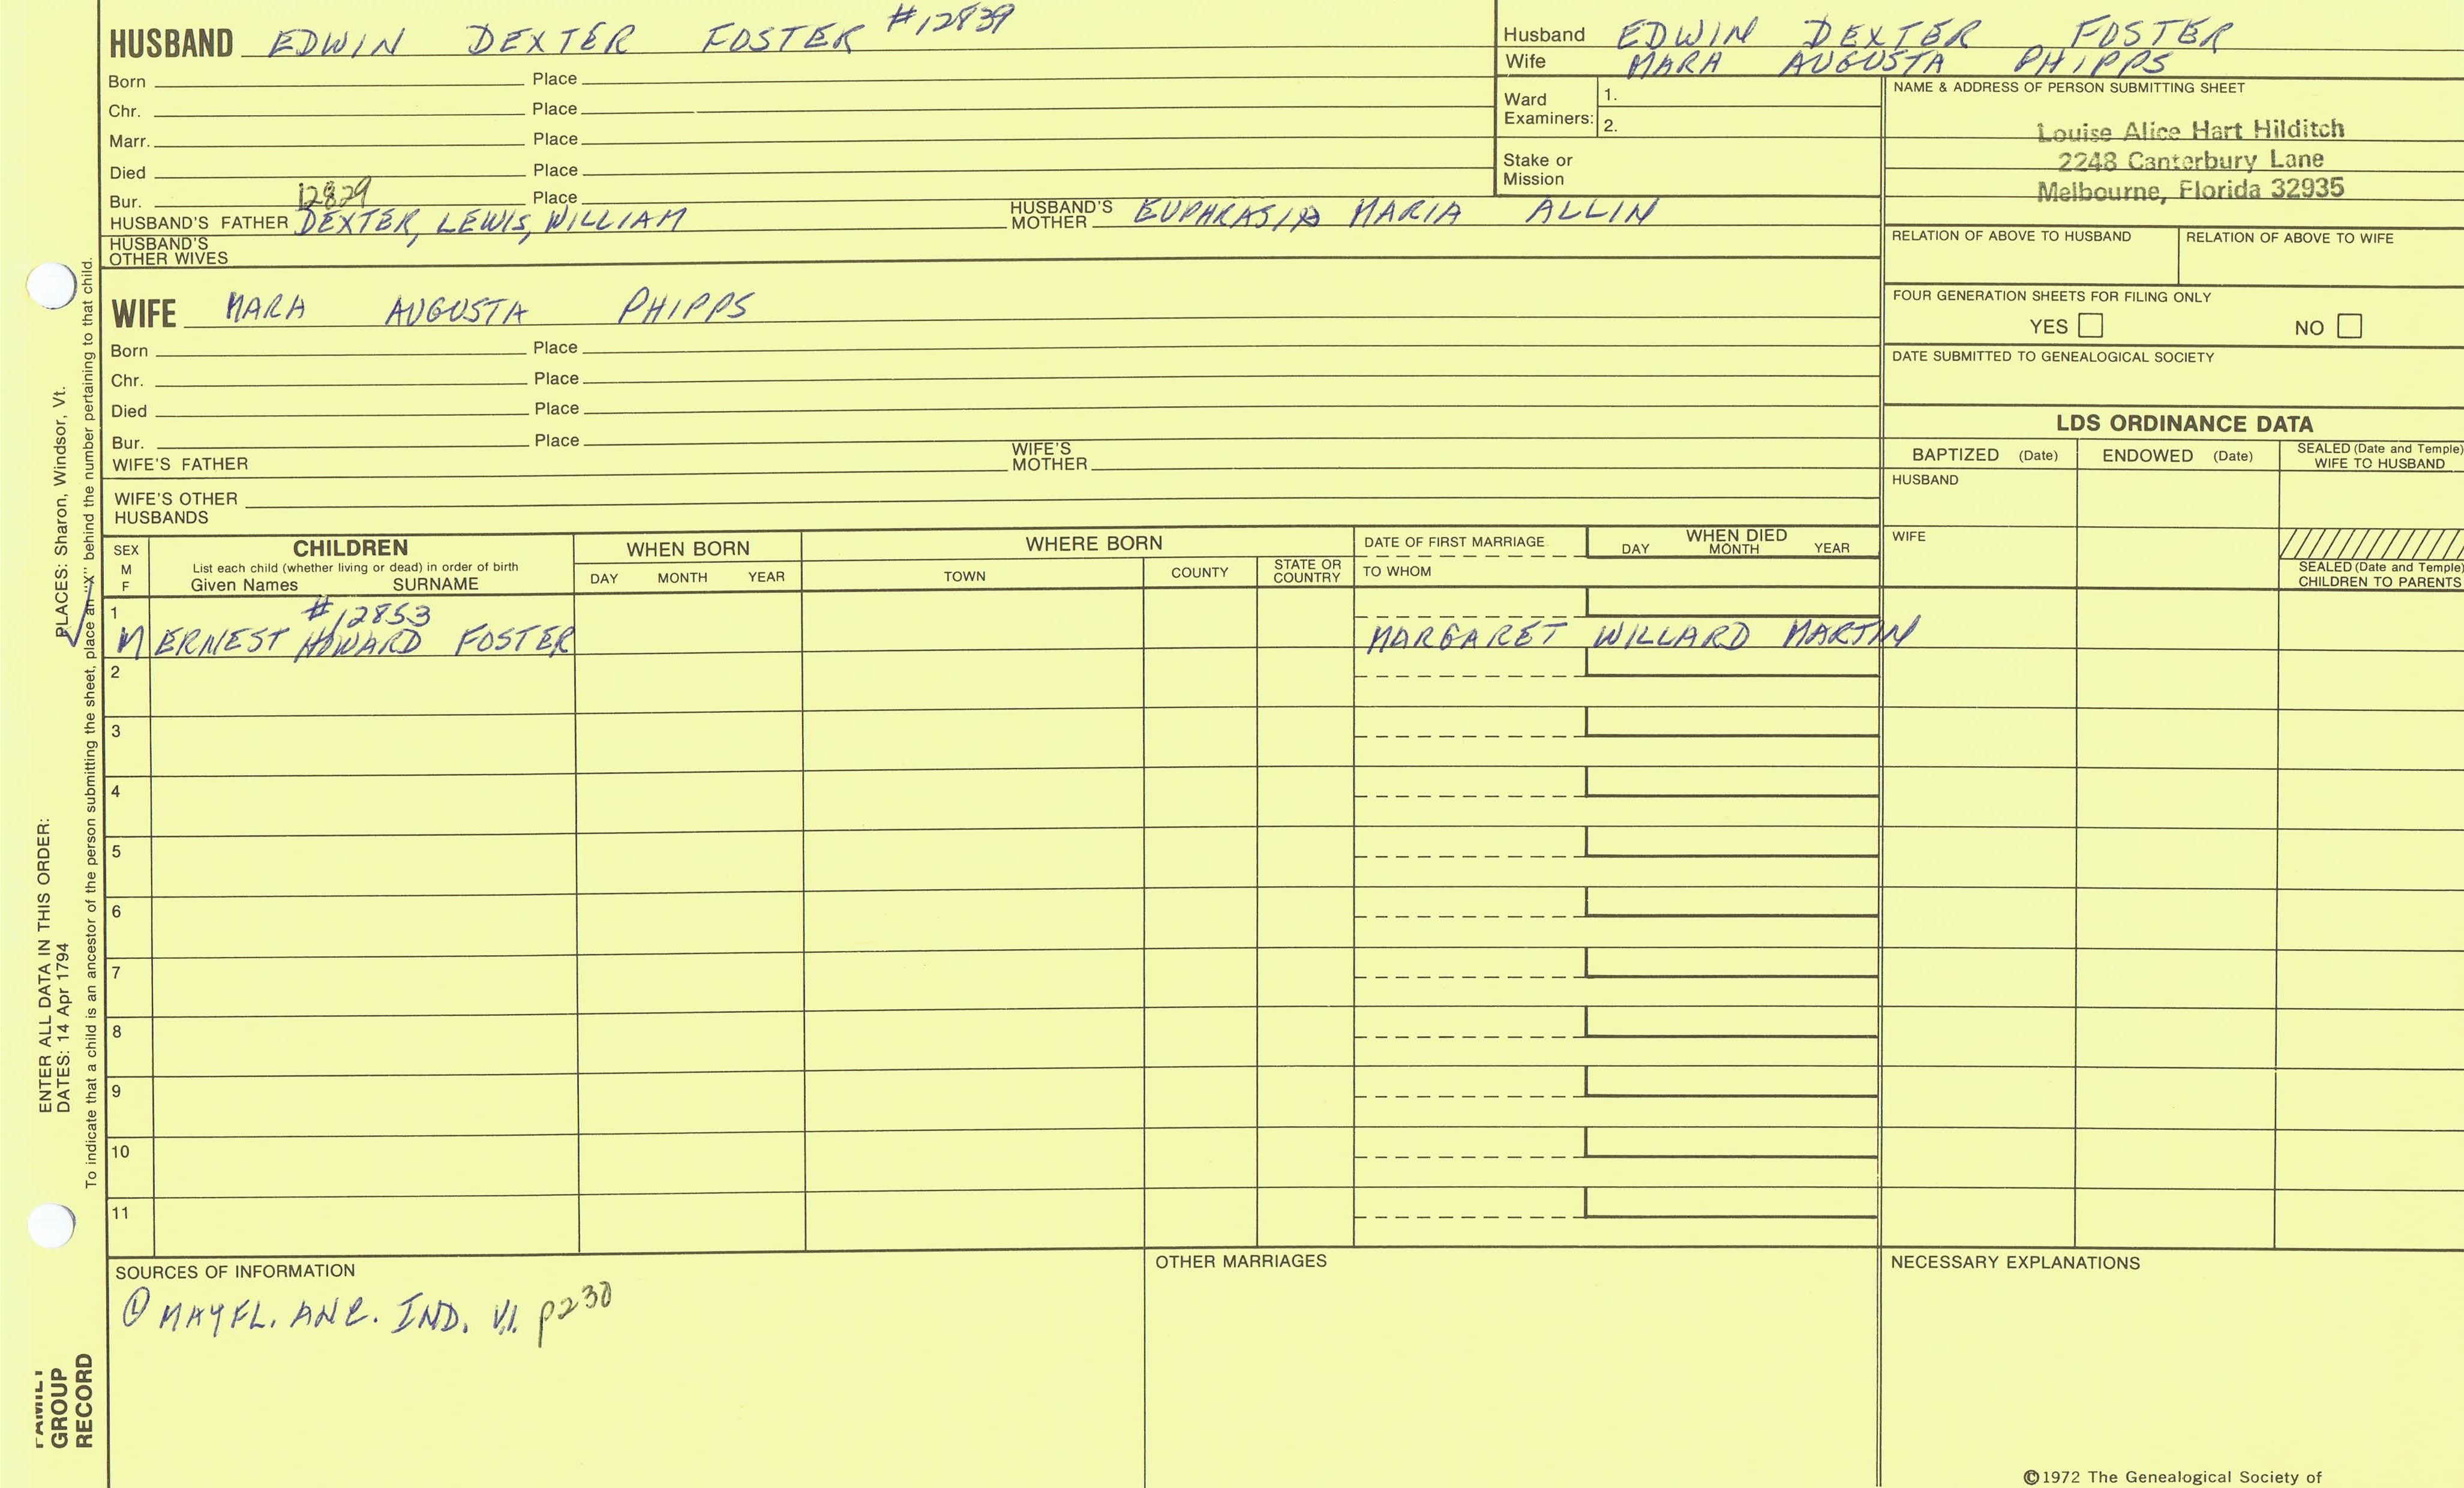 HUSBAND EDWIN DEXTER FOSTER #12839
Born Place
Chr. Place
Marr. Place
Died Place
Bur. Place
12829
HUSBAND'S FATHER DEXTER, LEWIS, WILLIAM HUSBAND'S MOTHER EUPHRASIA MARIA ALLIN
HUSBAND'S OTHER WIVES
Husband EDWIN DEXTER FOSTER
Wife MARA AUGUSTA PHIPPS
Ward Examiners: 1.
2.
Stake or Mission
NAME & ADDRESS OF PERSON SUBMITTING SHEET
Louise Alice Hart Hilditch
2248 Canterbury Lane
Melbourne, Florida 32935
RELATION OF ABOVE TO HUSBAND RELATION OF ABOVE TO WIFE
FOUR GENERATION SHEETS FOR FILING ONLY
YES NO
DATE SUBMITTED TO GENEALOGICAL SOCIETY
WIFE MARA AUGUSTA PHIPPS
Born Place
Chr. Place
Died Place
Bur. Place
WIFE'S FATHER WIFE'S MOTHER
WIFE'S OTHER HUSBANDS
LDS ORDINANCE DATA
BAPTIZED (Date) ENDOWED (Date) SEALED (Date and Temple) WIFE TO HUSBAND
HUSBAND
WIFE
SEALED (Date and Temple) CHILDREN TO PARENTS
SEX M F
CHILDREN
List each child (whether living or dead) in order of birth
Given Names SURNAME
WHEN BORN
DAY MONTH YEAR
WHERE BORN
TOWN COUNTY STATE OR COUNTRY
DATE OF FIRST MARRIAGE
TO WHOM
WHEN DIED
DAY MONTH YEAR
1 #12853
M ERNEST HOWARD FOSTER MARGARET WILLARD MARTIN
2
3
4
5
6
7
8
9
10
11
SOURCES OF INFORMATION
① MAYFL. ANC. IND. V.1. p230
OTHER MARRIAGES
NECESSARY EXPLANATIONS
©1972 The Genealogical Society of
ENTER ALL DATA IN THIS ORDER:
DATES: 14 Apr 1794
PLACES: Sharon, Windsor, Vt.
To indicate that a child is an ancestor of the person submitting the sheet, place an "X" behind the number pertaining to that child.
FAMILY
GROUP
RECORD